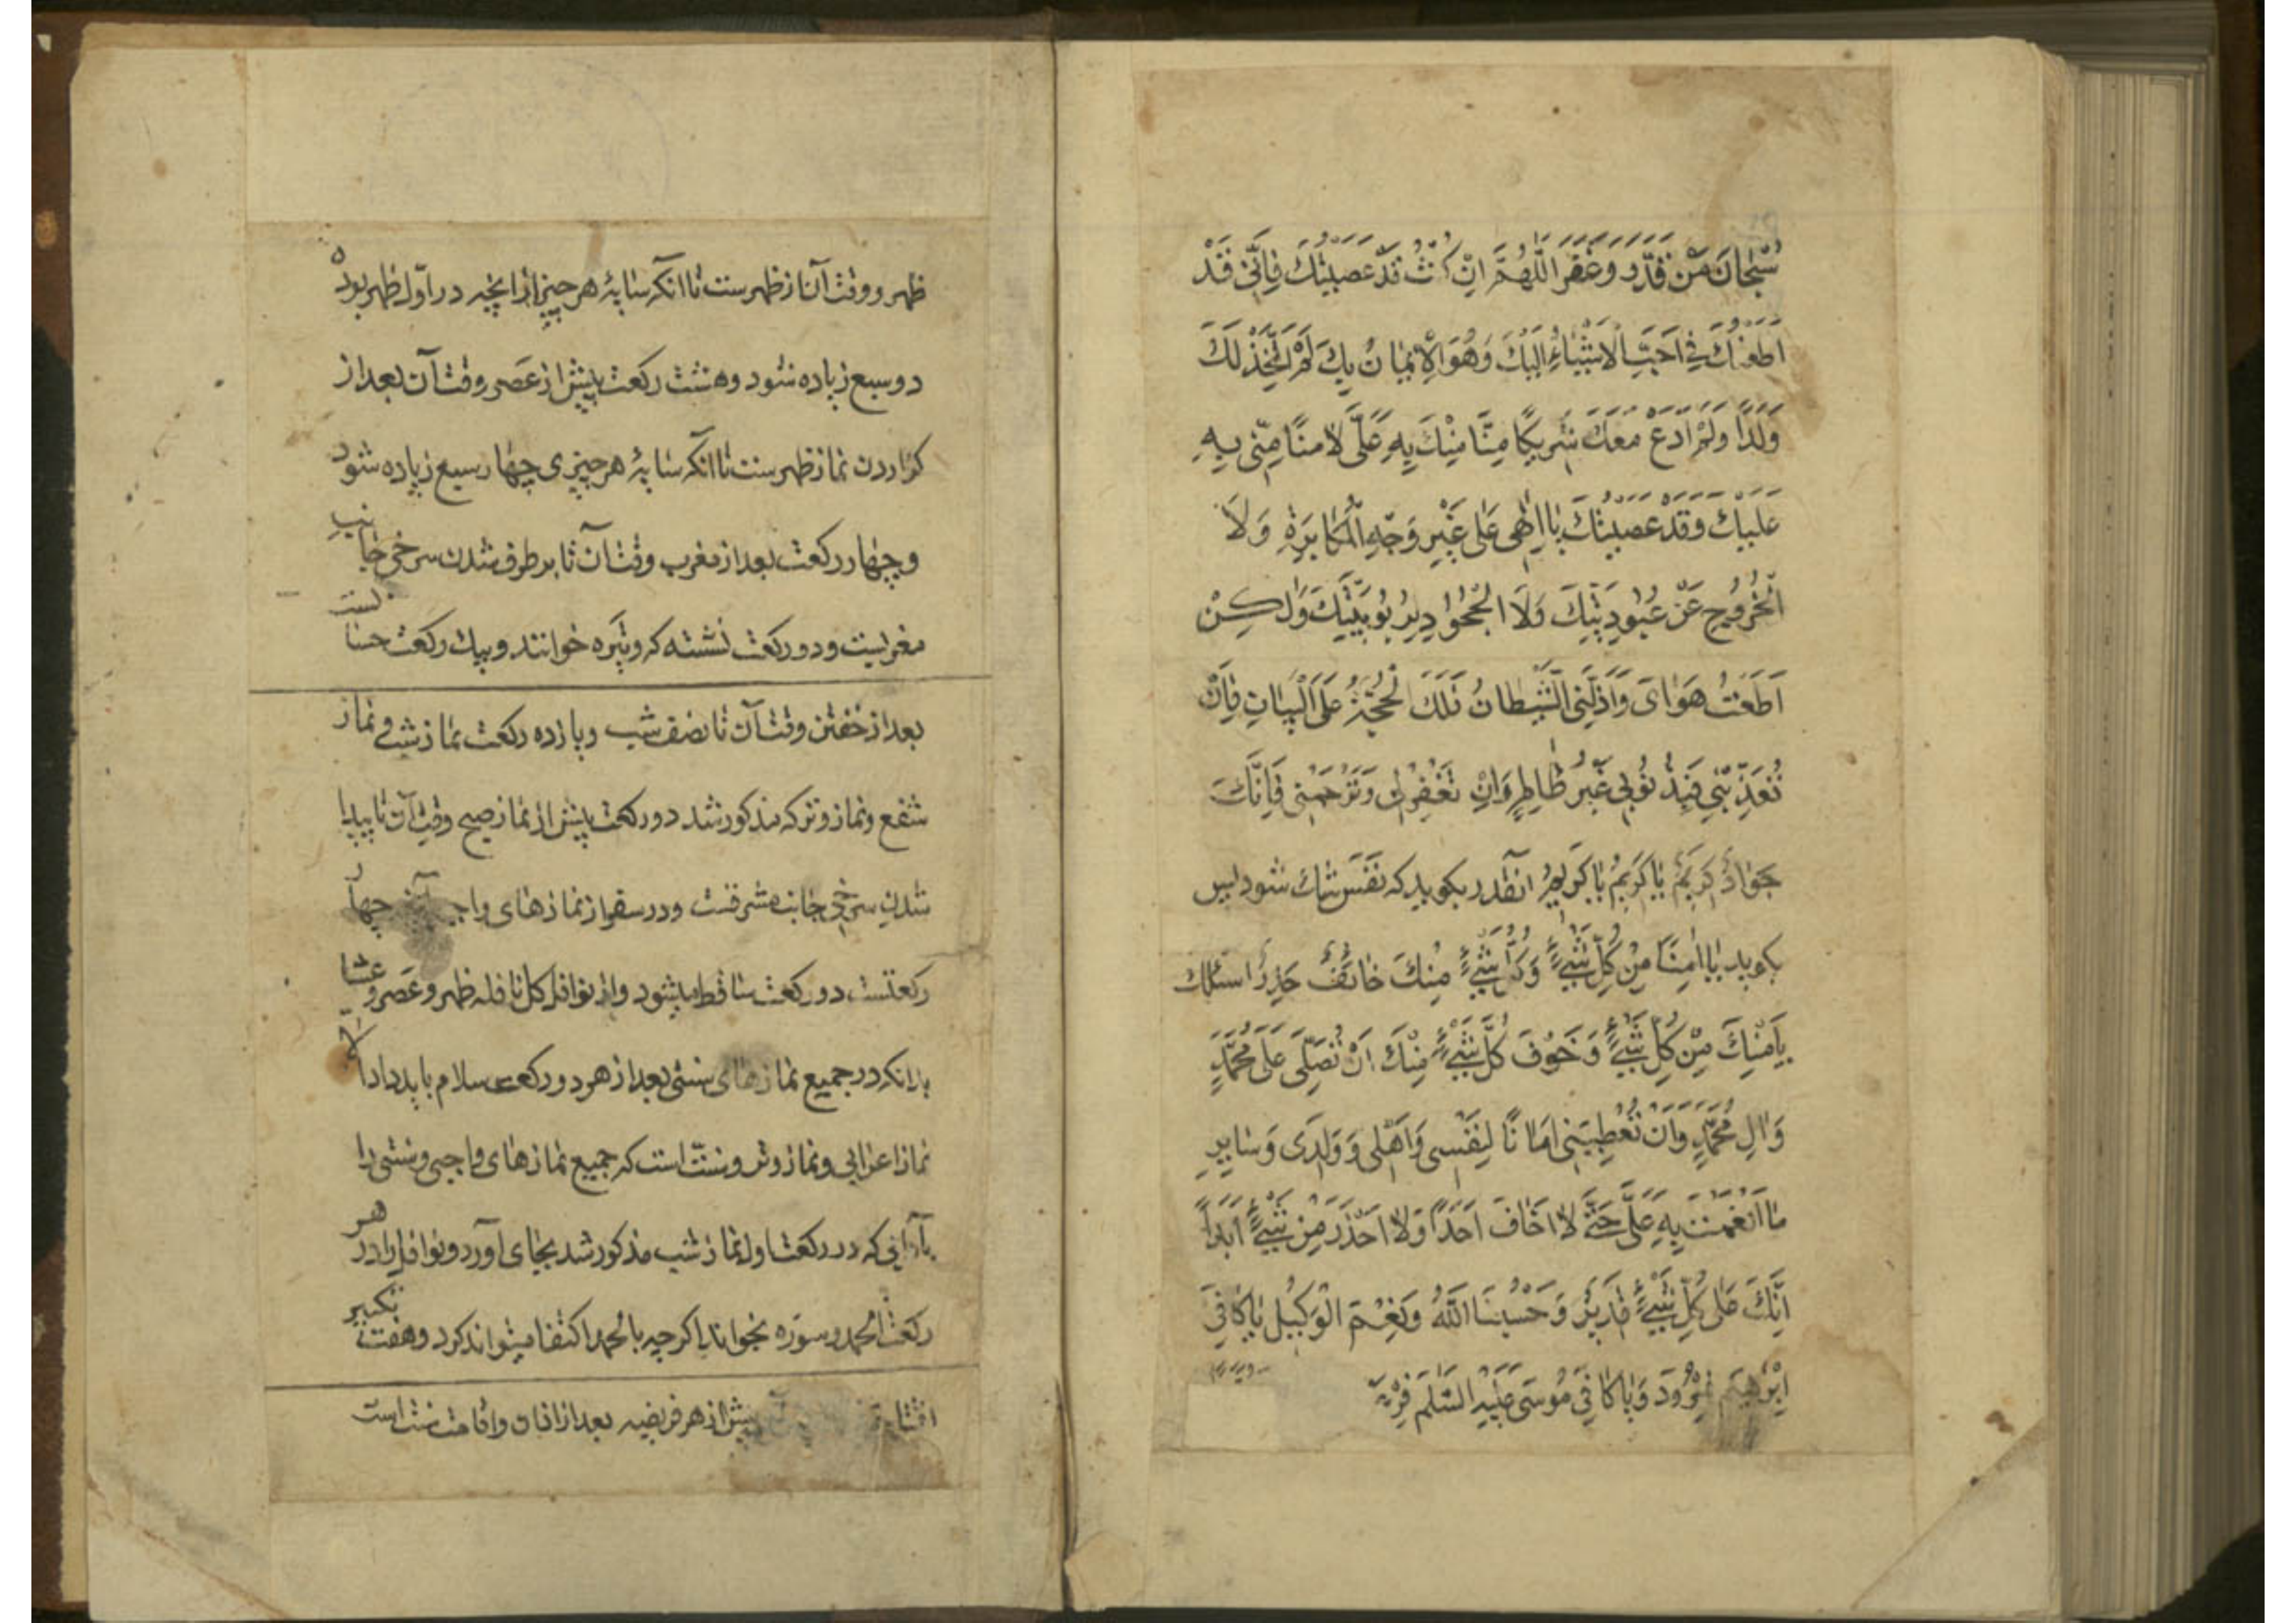 سُبْحَانَ مَنْ قَدَرَ وَغَفَرَ اللّٰهُمَّ اِنْ كُنْتُ قَدْ عَصَيْتُكَ فَاِنّى قَدْ
اَطَعْتُكَ فى اَحَبِّ الْاَشْيَاءِ اِلَيْكَ وَهُوَ الْاِيمَانُ بِكَ لَمْ اَتَّخِذْ لَكَ
وَلَدًا وَلَمْ اَدْعُ مَعَكَ شَرِيكًا مَنًّا مِنْكَ بِهِ عَلَىَّ لَا مَنًّا مِنّى بِهِ
عَلَيْكَ وَقَدْ عَصَيْتُكَ يَا اِلٰهى عَلى غَيْرِ وَجْهِ الْمُكَابَرَةِ وَلَا
الْخُرُوجِ عَنْ عُبُودِيَّتِكَ وَلَا الْجُحُودِ لِرُبُوبِيَّتِكَ وَلٰكِنْ
اَطَعْتُ هَوَاىَ وَاَزَلَّنِى الشَّيْطَانُ فَلَكَ الْحُجَّةُ عَلَىَّ الْبَيَانِ فَاِنْ
تُعَذِّبْنِي فَبِذُنُوبى غَيْرُ ظَالِمٍ وَاِنْ تَغْفِرْلى وَتَرْحَمْنى فَاِنَّكَ
جَوَادٌ كَرِيمٌ يَا كَرِيمُ يَا كَرِيمُ آنقدر بكويد كه نَفَس تنك شود پس
بكويد يَا اٰمِنًا مِنْ كُلِّ شَىْءٍ وَكُلُّ شَىْءٍ مِنْكَ خَائِفٌ حَذِرٌ اسئلك
بِاَمْنِكَ مِنْ كُلِّ شَىْءٍ وَخَوْفِ كُلِّ شَىْءٍ مِنْكَ اَنْ تُصَلِّىَ عَلى مُحَمَّدٍ
وَاٰلِ مُحَمَّدٍ وَاَنْ تُعْطِيَنى اَمَانًا لِنَفْسى وَاَهْلى وَوَلَدى وَسَايِرِ
مَا اَنْعَمْتَ بِهِ عَلَىَّ حَتّى لَا اَخَافَ اَحَدًا وَلَا اَحْذَرَ مِنْ شَىْءٍ اَبَدًا
اِنَّكَ عَلى كُلِّ شَىْءٍ قَدِيرٌ وَحَسْبُنَا اللّٰهُ وَنِعْمَ الْوَكِيلُ يَا كَافِىَ
اِبْرٰهِيمَ نُمْرُودَ وَيَا كَافِىَ مُوسَى عَلَيْهِ السَّلٰمُ فِرْعَ
ظهر و وقت آن از ظهرست تا آنكه سايهٔ هر چيز از آنچه در اوّل ظهر بوده
دو سبع زياده شود و هشت ركعت پيش از عَصر وقت آن بعد از
كزاردن نماز ظهرست تا آنكه سايهٔ هر چيزى چهار سبع زياده شود
و چهار ركعت بعد از مغرب وقت آن تا بر طرف شدن سرخى جانب
مغربست و دو ركعت نشسته كه وتيره خوانند و بيك ركعت حسابست
بعد از خفتن وقت آن تا نصف شب و يازده ركعت نماز شب و نماز
شفع و نماز وتر كه مذكور شد دو ركعت پيش از نماز صبح وقت آن تا پيدا
شدن سرخى جانب مشرقست و در سفر از نمازهاى واجبى آنچه چهار
ركعتست دو ركعت ساقط ميشود و از نوافل كل نافله ظهر و عَصر و عشا
بدانكه در جميع نمازهاى سنتى بعد از هر دو ركعت سلام بايد داد الا
نماز اعرابى و نماز وتر و سنّت است كه جميع نمازهاى واجبى و سنتى را
بآدابى كه در ركعت اول نماز شب مذكور شد بجاى آورد و نوافل را در هر
ركعت الحمد و سوره بخواند اكر چه بالحمد اكتفا ميتواند كرد و هفت تكبير
پيش از هر فريضه بعد از اذان و اقامت سنت است